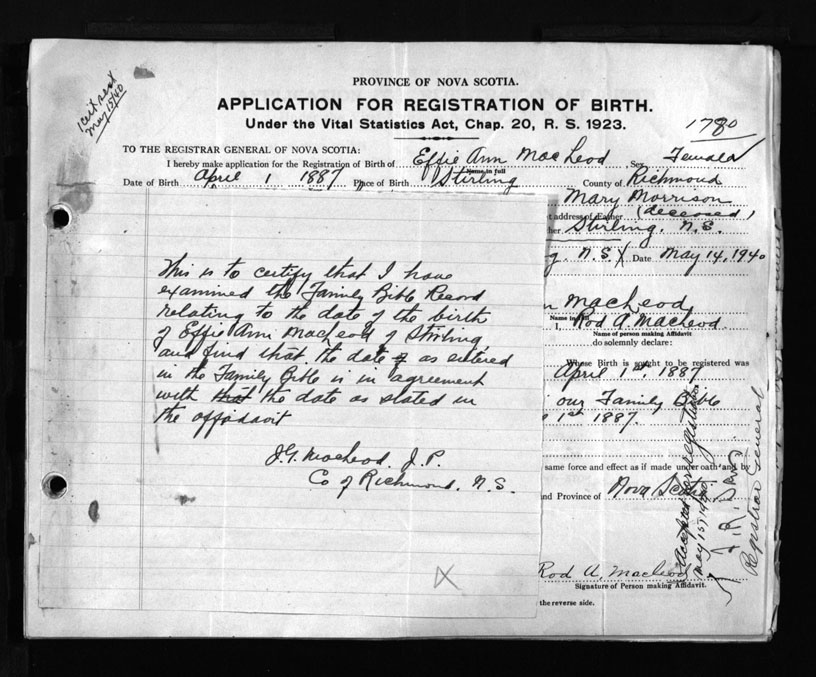 1 cert sent
May 15/40
PROVINCE OF NOVA SCOTIA.
APPLICATION FOR REGISTRATION OF BIRTH.
Under the Vital Statistics Act, Chap. 20, R. S. 1923.
1780
TO THE REGISTRAR GENERAL OF NOVA SCOTIA:
I hereby make application for the Registration of Birth of Effie Ann MacLeod Sex Female
Name in full
Date of Birth April 1 1887 Place of Birth Stirling County of Richmond
Mary Morrison
t address of Father (deceased)
her Stirling, N.S.
g, N.S. Date May 14, 1940
n MacLeod
Name in full
I, Rod A MacLeod
Name of person making Affidavit
do solemnly declare:
Whose Birth is sought to be registered was
April 1st, 1887
our Family Bible
1st 1887.
same force and effect as if made under oath and by
nd Province of Nova Scotia
Rod A MacLeod
Signature of Person making Affidavit.
the reverse side.
This is to certify that I have
examined the Family Bible Record
relating to the date of the birth
of Effie Ann MacLeod of Stirling
and find that the date of as entered
in the Family Bible is in agreement
with that the date as stated in
the affidavit
J.G. MacLeod, J.P.
Co of Richmond, N.S.
X
Accepted for registration
May 15th 1940
Registrar General